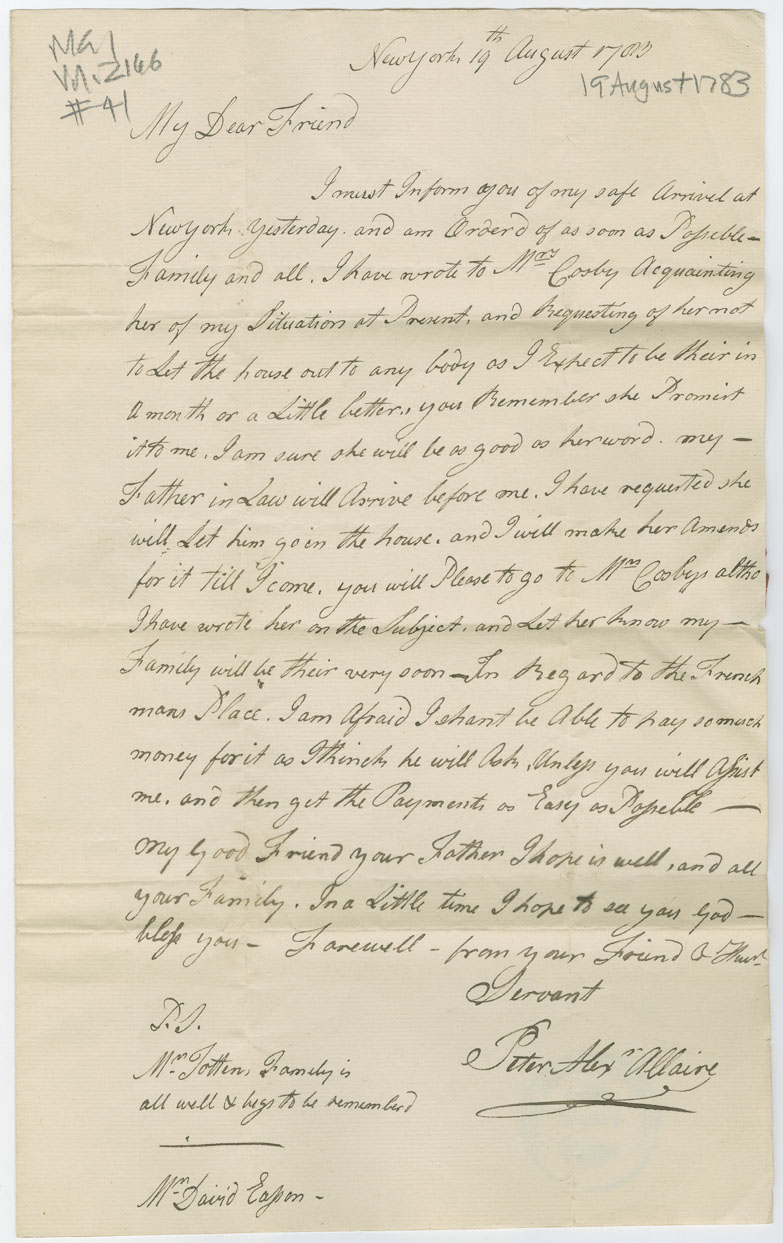 MG1
Vol. 2166
#41
New York 19th August 1783
19 August 1783
My Dear Friend
I must Inform you of my safe Arrival at
New York Yesterday. and am Orderd of as soon as Posseble—
Family and all. I have wrote to Mrs Cosby Acquainting
her of my Situation at Present, and Requesting of her not
to Let the house out to any body as I Expect to be their in
a month or a Little better, you Remember she Promist
it to me. I am sure she will be as good as her word. my—
Father in Law will Arrive before me. I have requested she
will Let him go in the house. and I will make her Amends
for it till I come. you will Please to go to Mrs Cosbys altho
I have wrote her on the Subject. and Let her know my—
Family will be their very soon—In Regard to the French
mans Place. I am Afraid I shant be Able to pay so much
money for it as I think he will Ask, Unless you will Assist
me. and then get the Payments as Easy as Posseble—
my Good Friend your Father I hope is well, and all
your Family. In a Little time I hope to see you God—
bless you— Farewell— from your Friend & Humb
Servant
Peter Alexr Allaire
P.S.
Mr Tottens Family is
all well & begs to be rememberd
Mr David Easson—